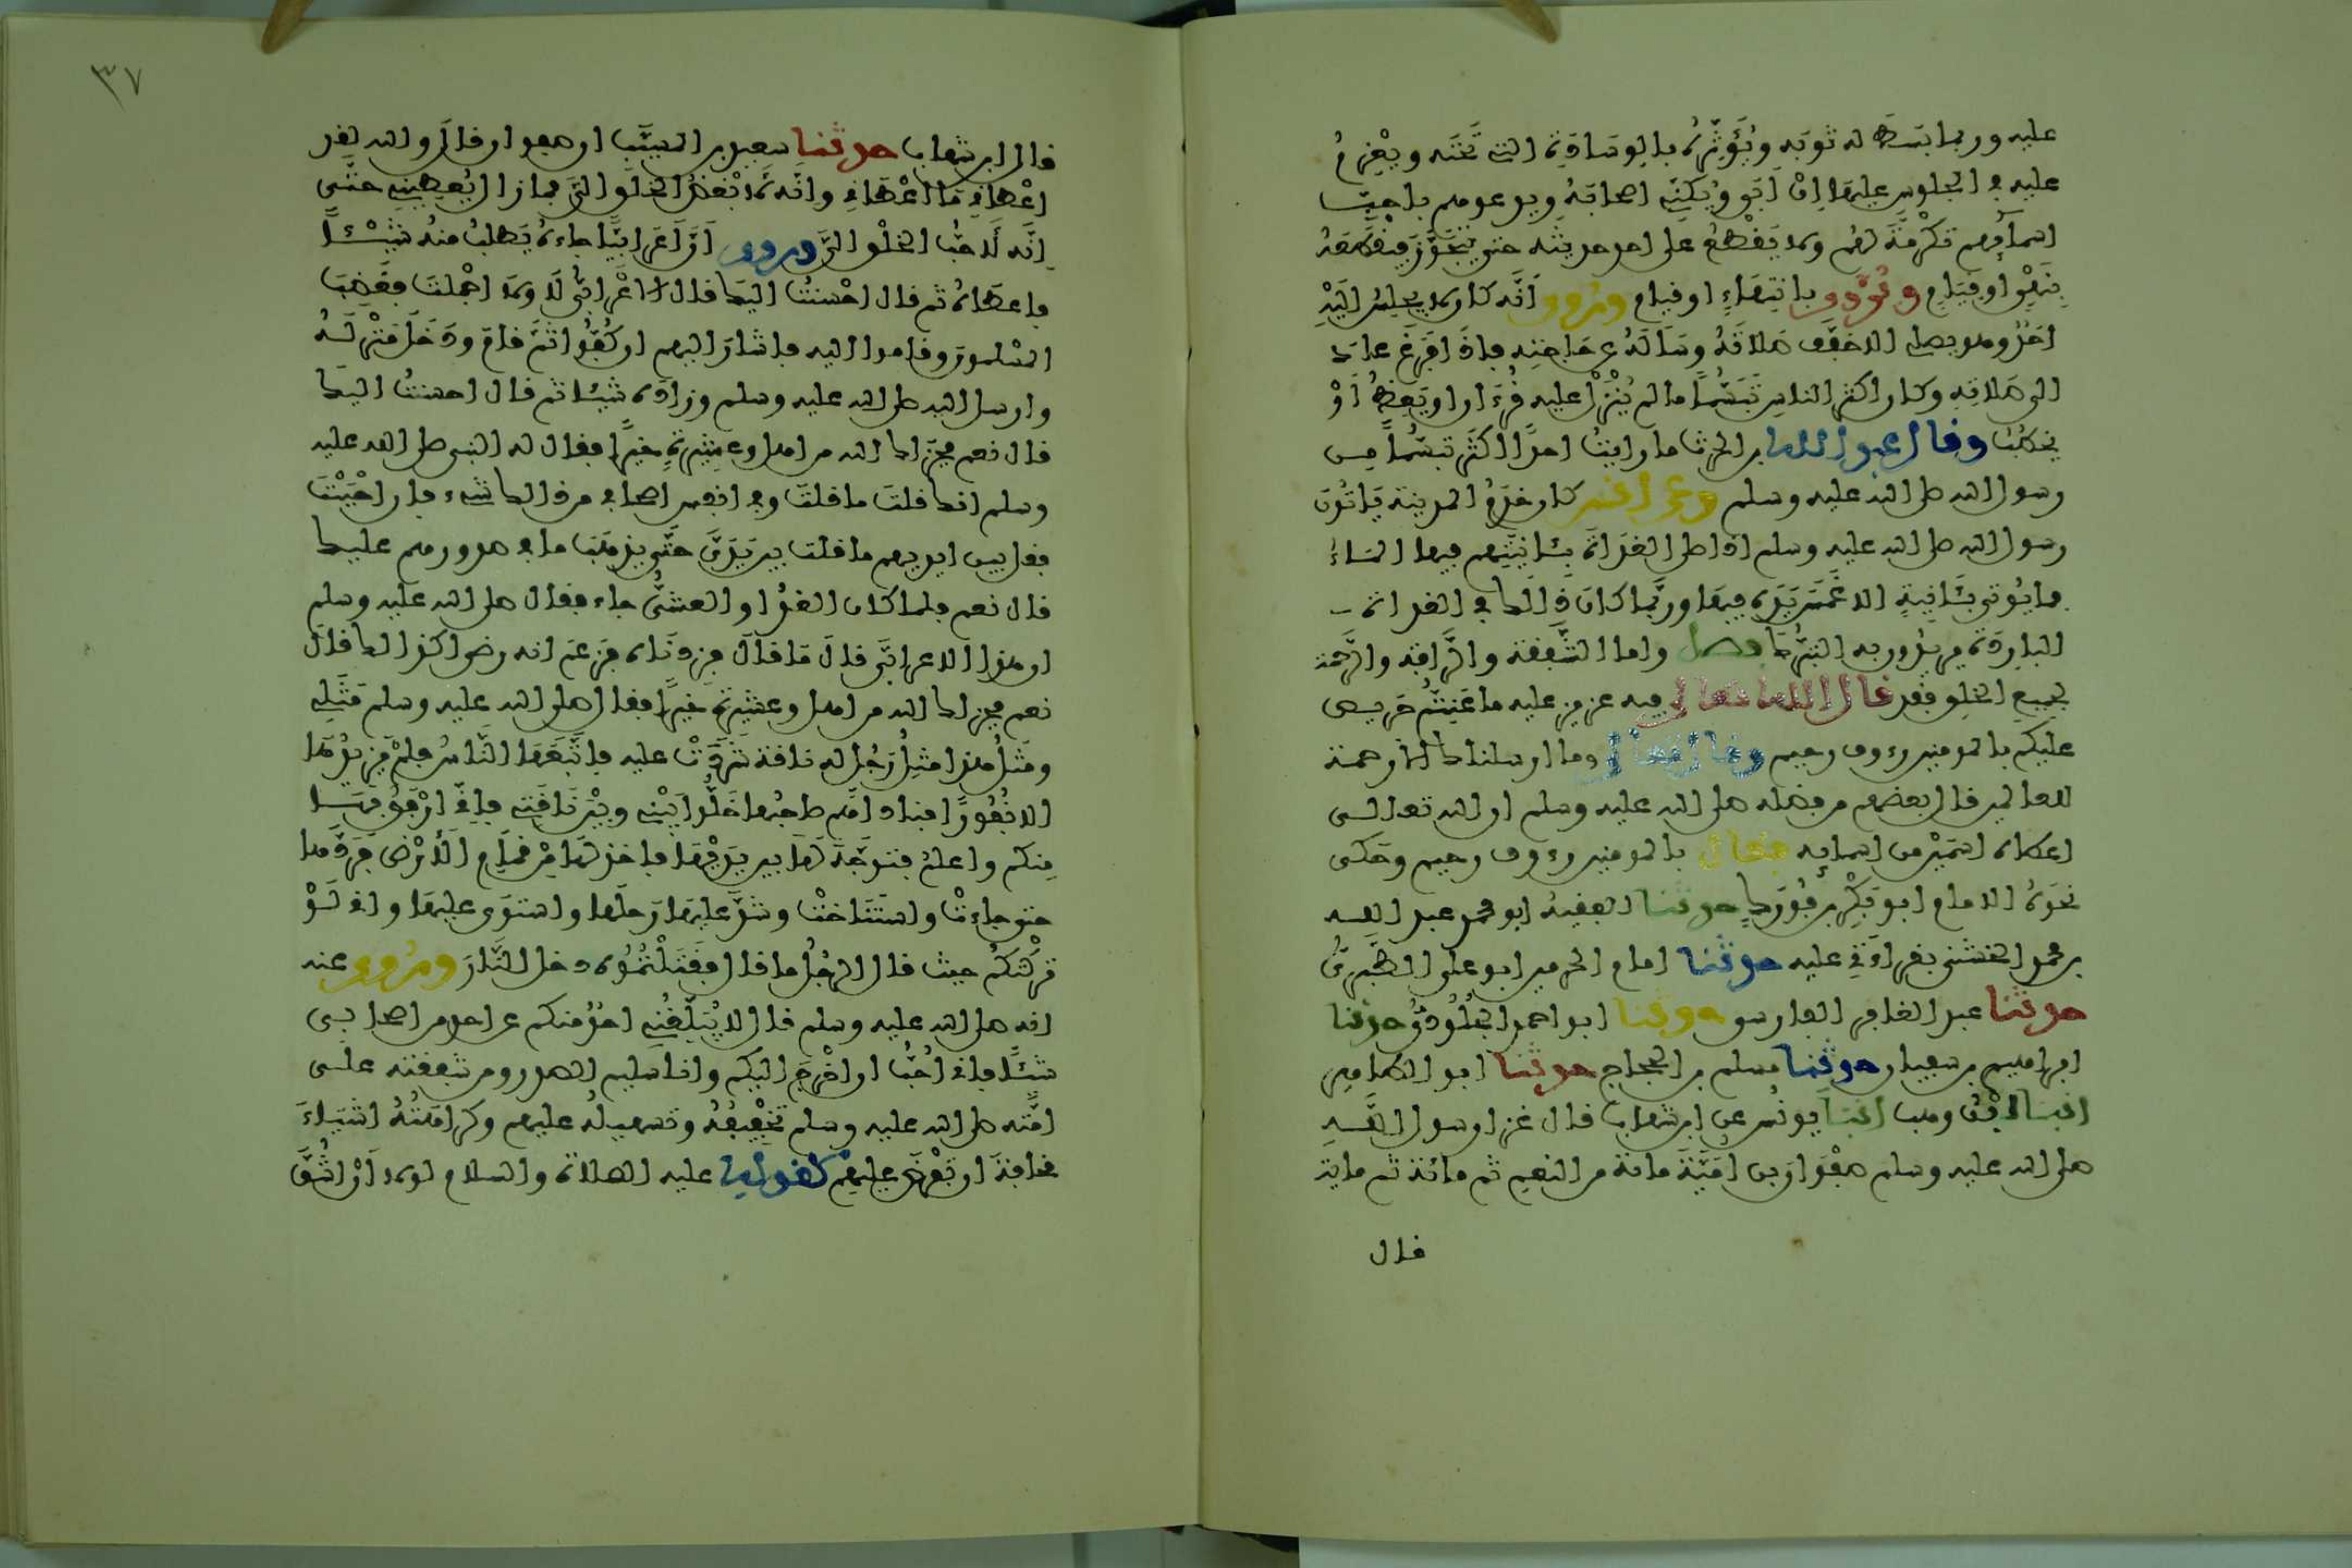 عليه وربما بسط له ثوبه ويؤثره بالوسادة التي تحته ويعزم
عليه في الجلوس عليها ان ابى ويكني اصحابه ويدعوهم باحب
اسمائهم تكرمة لهم ولا يقطع على احد حديثه حتى يتجوز فيقطعه
بنهي او قيام ويروى بانتهاء او قيام وروي انه كان لا يجلس اليه
احد وهو يصلي الا خفف صلاته وساله عن حاجته فاذا فرغ عاد
الى صلاته وكان اكثر الناس تبسما ما لم ينزل عليه قرءان او يعظ او
يخطب وقال عبد الله بن الحرث ما رايت احدا اكثر تبسما من
رسول الله صلى الله عليه وسلم وعن انس كان خدم المدينة ياتون
رسول الله صلى الله عليه وسلم اذا صلى الغداة بئانيتهم فيها الماء
فما يوتى بئانية الا غمس يده فيها وربما كان ذالك في الغداة
الباردة يريدون به التبرك فصل واما الشفقة والرافة والرحمة
لجميع الخلق فقد قال الله تعالى فيه عزيز عليه ما عنتم حريص
عليكم بالمومنين رءوف رحيم وقال تعالى وما ارسلناك الا رحمة
للعالمين قال بعضهم من فضله صلى الله عليه وسلم ان الله تعالى
اعطاه اسمين من اسمائه فقال بالمومنين رءوف رحيم وحكى
نحوه الامام ابو بكر بن فورك حدثنا الفقيه ابو محمد عبد الله
بن محمد الخشني بقراءتي عليه حدثنا امام الحرمين ابو علي الطبري
حدثنا عبد الغافر الفارسي حدثنا ابو احمد الجلودي حدثنا
ابراهيم بن سفيان حدثنا مسلم بن الحجاج حدثنا ابو الطاهر
انبانا ابن وهب انبا يونس عن ابن شهاب قال غزا رسول الله
صلى الله عليه وسلم صفوان بن امية مائة من النعم ثم مائة ثم مائة
قال
٣٧
قال ابن شهاب حدثنا سعيد بن المسيب ان صفوان قال والله لقد
اعطاني ما اعطاني وانه لابغض الخلق الي فما زال يعطيني حتى
انه لاحب الخلق الي وروي ان اعرابيا جاءه يطلب منه شيئا
فاعطاه ثم قال احسنت اليك قال الاعرابي لا ولا اجملت فغضب
المسلمون وقاموا اليه فاشار اليهم ان كفوا ثم قام ودخل منزله
وارسل اليه صلى الله عليه وسلم وزاده شيئا ثم قال احسنت اليك
قال نعم فجزاك الله من اهل وعشيرة خيرا فقال له النبي صلى الله عليه
وسلم انك قلت ما قلت وفي انفس اصحابي من ذالك شيء فان احببت
فقل بين ايديهم ما قلت بين يدي حتى يذهب ما في صدورهم عليك
قال نعم فلما كان الغد او العشي جاء فقال صلى الله عليه وسلم
ان هذا الاعرابي قال ما قال فزدناه فزعم انه رضي اكذالك قال
نعم فجزاك الله من اهل وعشيرة خيرا فقال صلى الله عليه وسلم مثلي
ومثل هذا مثل رجل له ناقة شردت عليه فاتبعها الناس فلم يزيدوها
الا نفورا فناداهم صاحبها خلوا بيني وبين ناقتي فاني ارفق بها
منكم واعلم فتوجه لها بين يديها فاخذ لها من قمام الارض فردها
حتى جاءت واستناخت وشد عليها رحلها واستوى عليها واني لو
تركتكم حيث قال الرجل ما قال فقتلتموه دخل النار وروي عنه
انه صلى الله عليه وسلم قال لا يبلغني احد منكم عن احد من اصحابي
شئا فاني احب ان اخرج اليكم وانا سليم الصدر ومن شفقته على
امته صلى الله عليه وسلم تخفيفه وتسهيله عليهم وكراهته اشياء
مخافة ان تفرض عليهم كقوله عليه الصلاة والسلام لولا ان اشق